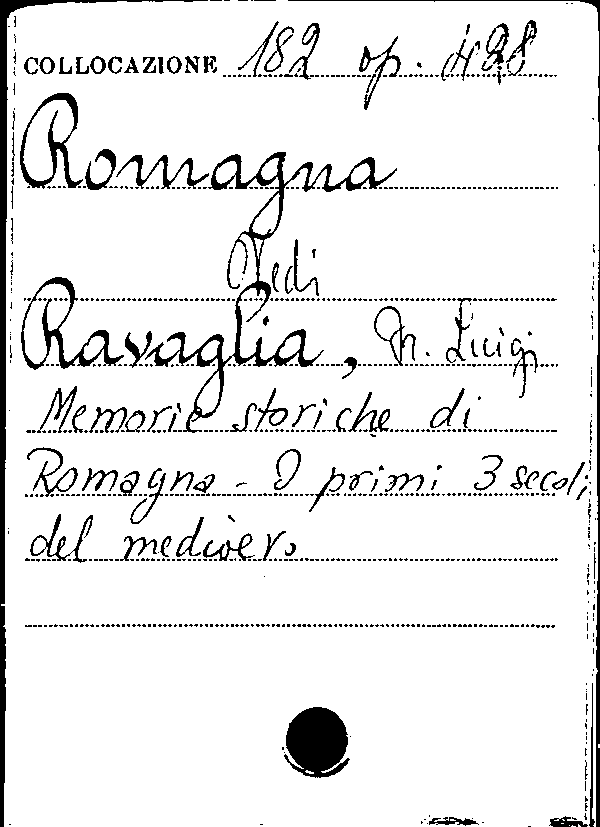 COLLOCAZIONE 182 op. 428
Romagna
Vedi
Ravaglia, Luigi
Memorie storiche di
Romagna - I primi 3 secoli
del medioevo